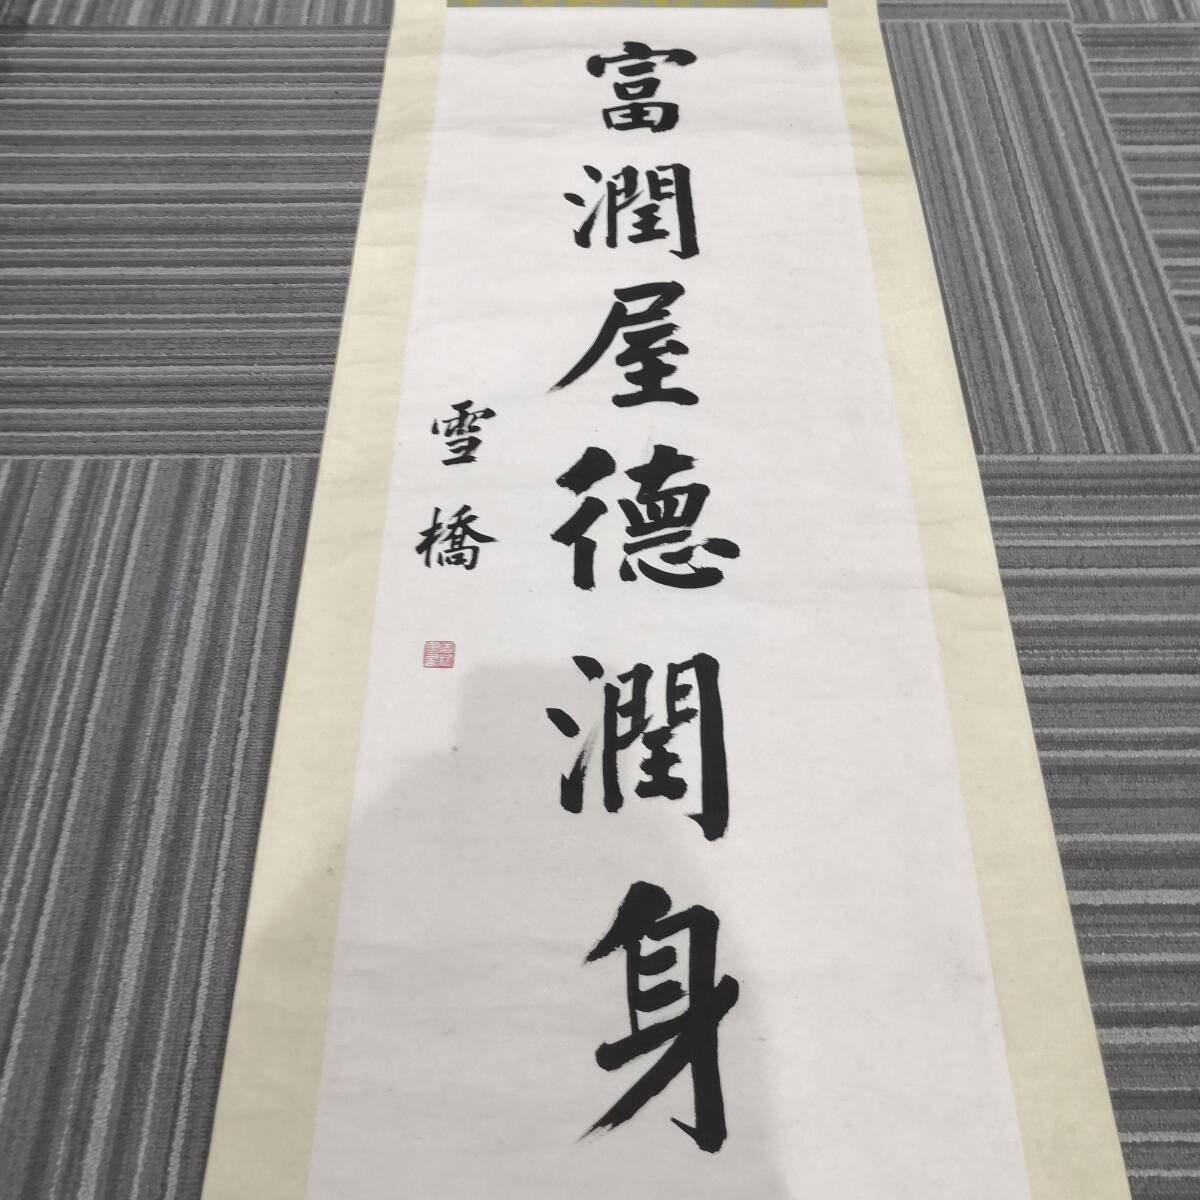 富潤屋德潤身
雪橋